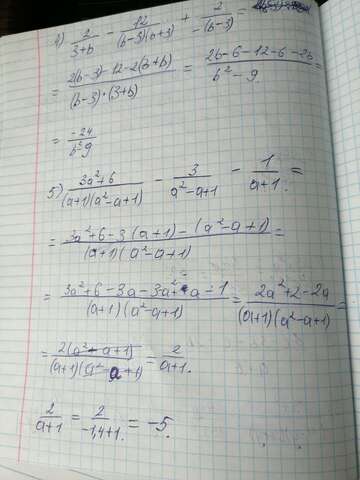 4) 2/(3+b) - 12/((b-3)(b+3)) + 2/(-(b-3)) =
= (2(b-3)-12-2(3+b))/((b-3)*(3+b)) = (2b-6-12-6-2b)/(b²-9) =
= -24/(b²-9)
5) (3a²+6)/((a+1)(a²-a+1)) - 3/(a²-a+1) - 1/(a+1) =
= (3a²+6-3(a+1)-(a²-a+1))/((a+1)(a²-a+1)) =
= (3a²+6-3a-3a²+a-1)/((a+1)(a²-a+1)) = (2a²+2-2a)/((a+1)(a²-a+1)) =
= 2(a²-a+1)/((a+1)(a²-a+1)) = 2/(a+1).
2/(a+1) = 2/(-1,4+1) = -5.